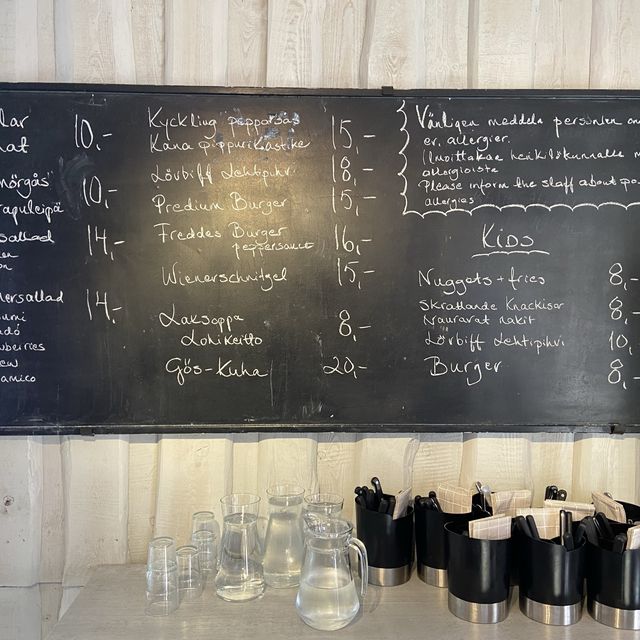 10,-
10,-
14,-
14,-
Kyckling pepparsås 15,-
Kana pippurikastike
Lövbiff Lehtipihvi 18,-
Predium Burger 15,-
Freddes Burger 16,-
peppersauce
Wienerschnitzel 15,-
Laxsoppa 8,-
Lohikeitto
Gös-Kuha 20,-
Vänligen meddela personlen om
er. allergier.
Ilmoittakaa henkilökunnalle
allergioista
Please inform the staff about
allergies
KIDS
Nuggets + fries 8,-
Skrattande Knackisar 8,-
Nauravat nakit
Lövbiff Lehtipihvi 10,
Burger 8,-